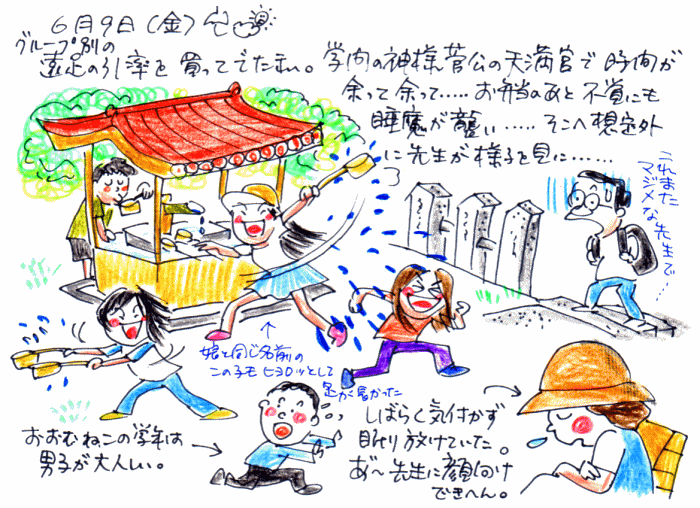 6月9日(金)
グループ別の
遠足の引率を買ってでたまい。学問の神様菅公の天満宮で時間が
余って余って‥‥‥お弁当のあと不覚にも
睡魔が襲い‥‥‥そこへ想定外
に先生が様子を見に‥‥‥
これまた
マジメな先生で‥
娘と同じ名前の
この子もヒョロッとして
足が長かった
おおむねこの学年は
男子が大人しい。
しばらく気付かず
眠り放けていた。
あ゛〜先生に顔向け
できへん。